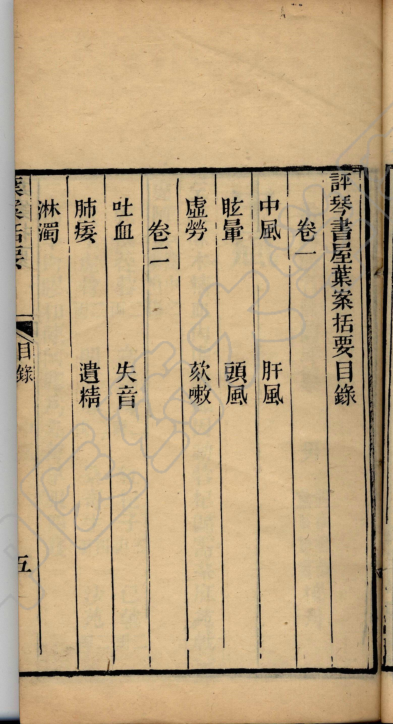 評琴書屋葉案括要目錄
卷一
中風 肝風
眩暈 頭風
虛勞 欬嗽
卷二
吐血 失音
肺痿 遺精
淋濁
葉案括要 目錄 五